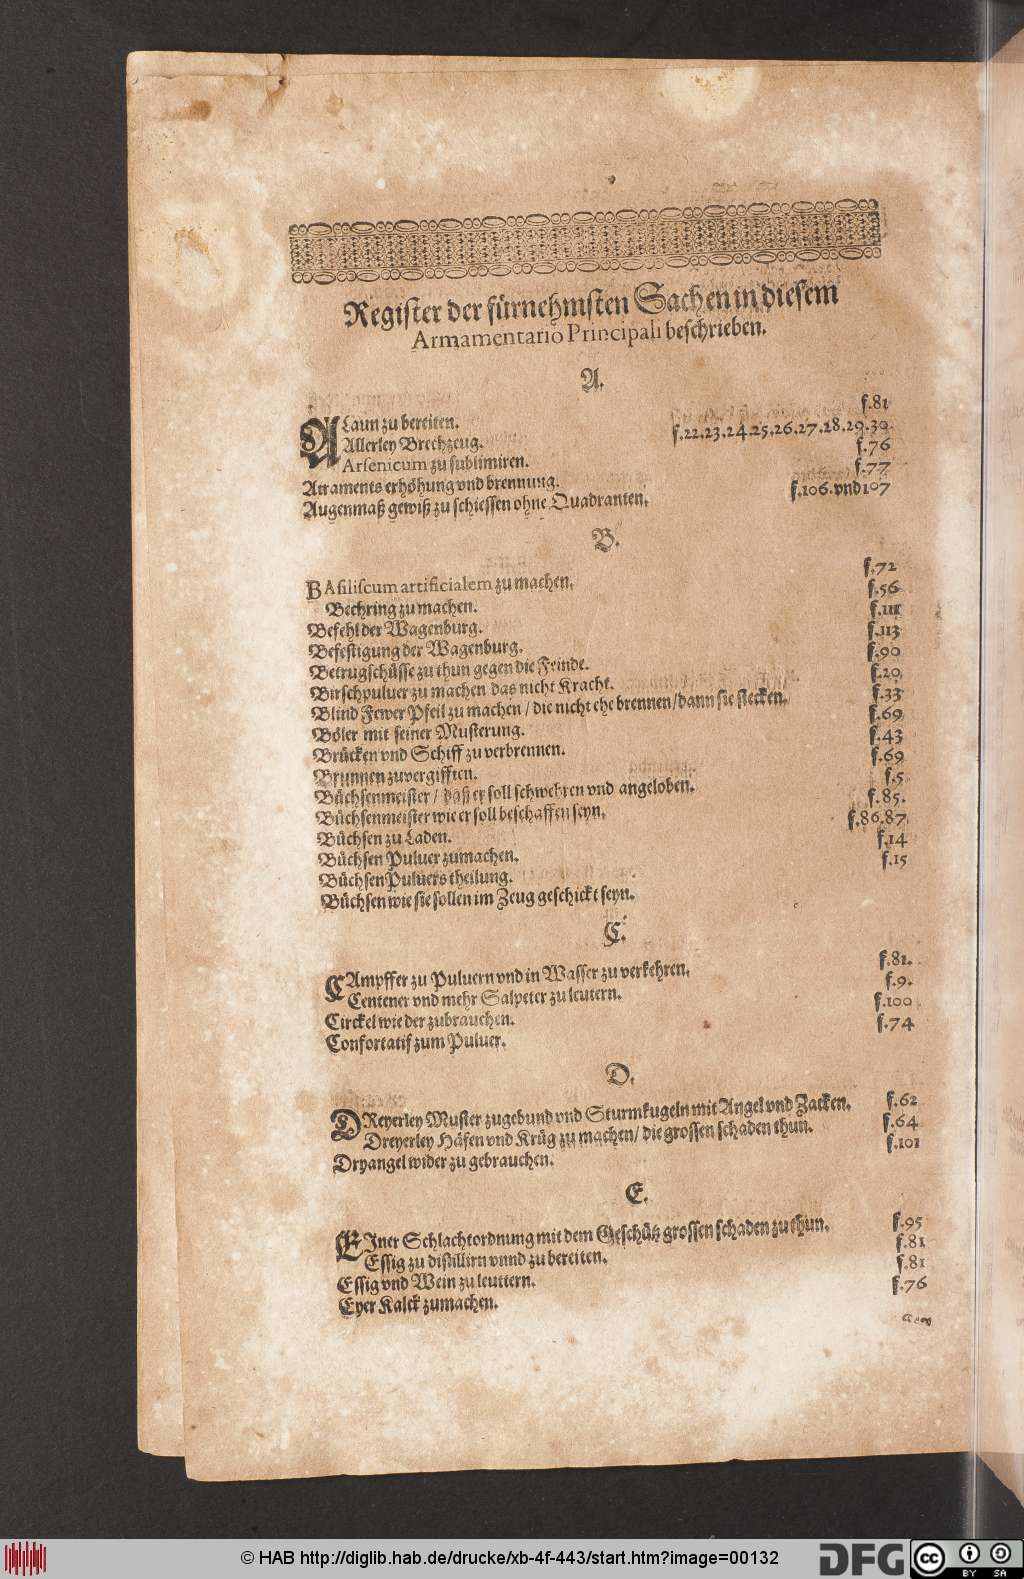 Register der fürnehmsten Sachen in diesem
Armamentario Principali beschrieben.
A.
ALaun zu bereiten. f.81
Allerley Brechzeug. f.22.23.24.25.26.27.28.29.30
Arsenicum zu sublimiren. f.76
Atraments erhöhung vnd brennung. f.77
Augenmaß gewiß zu schiessen ohne Quadranten. f.106.vnd107
B.
BAsiliscum artificialem zu machen. f.72
Bechring zu machen. f.56
Befehl der Wagenburg. f.111
Befestigung der Wagenburg. f.113
Betrugschüsse zu thun gegen die Feinde. f.90
Birschpuluer zu machen das nicht Kracht. f.20
Blind Fewer Pfeil zu machen / die nicht ehe brennen/dann sie stecken. f.33
Böler mit seiner Musterung. f.69
Brücken vnd Schiff zu verbrennen. f.43
Brunnen zuvergifften. f.69
Büchsenmeister / daß er soll schwehren vnd angeloben. f.5
Büchsenmeister wie er soll beschaffen seyn. f.85.
Büchsen zu Laden. f.86.87
Büchsen Puluer zumachen. f.14
Büchsen Puluers theilung. f.15
Büchsen wie sie sollen im Zeug geschickt seyn.
C.
CAmpffer zu Puluern vnd in Wasser zu verkehren. f.81.
Centener vnd mehr Salpeter zu leutern. f.9.
Circkel wie der zubrauchen. f.100
Confortatif zum Puluer. f.74
D.
DReyerley Muster zugebund vnd Sturmkugeln mit Angel vnd Zacken. f.62
Dreyerley Häfen vnd Krüg zu machen/ die grossen schaden thun. f.64
Dryangel wider zu gebrauchen. f.101
E.
EJner Schlachtordnung mit dem Geschütz grossen schaden zu thun. f.95
Essig zu distillirn vnnd zu bereiten. f.81
Essig vnd Wein zu leuttern. f.81
Eyer Kalck zumachen. f.76
© HAB http://diglib.hab.de/drucke/xb-4f-443/start.htm?image=00132
DFG
cc BY SA